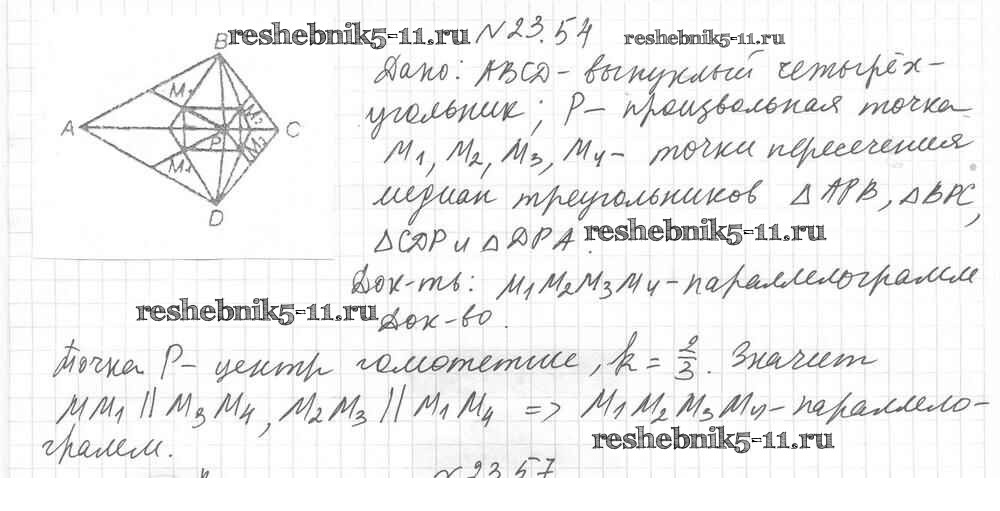 reshebnik5-11.ru №23.54 reshebnik5-11.ru
Дано: ABCD - выпуклый четырёх-
угольник; P - произвольная точка
M1, M2, M3, M4 - точки пересечения
медиан треугольников △APB, △BPC,
△CDP и △DPA. reshebnik5-11.ru
Док-ть: M1M2M3M4 - параллелограмм
reshebnik5-11.ru Док-во.
Точка P - центр гомотетии, k = 2/3. Значит
MM1 || M3M4, M2M3 || M1M4 => M1M2M3M4 - параллело-
грамм. reshebnik5-11.ru
№23.57
B
M1
M2
A
P
C
M4
M3
D